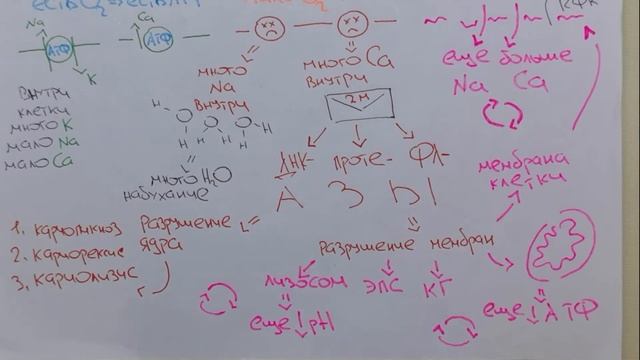 Na
АТФ
K
Ca
АТФ
внутри
клетки
много K
мало Na
мало Ca
много
Na
внутри
H
O
H
H
O
H
O
H
=
много H₂O
набухание
много Ca
внутри
2м
ДНК- проте- ФЛ-
А З Ы
еще больше
Na Ca
мембрана
клетки
1. кариопикноз
2. кариорексис
3. кариолизис
разрушение
ядра
разрушение мембран
лизосом ЭПС КГ
еще ↓ pH
еще ↓ АТФ